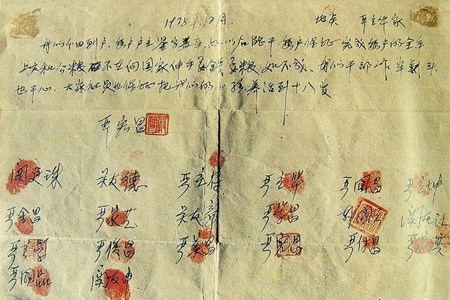 1978年12月 地点 严立华家
我们分田到户,每户户主签字盖章,如以后能干,每户保证完成每户的全年
上交和公粮,不在向国家伸手要钱要粮,如不成,我们干部作牢刹头
也干心,大家社员也保证把我们的小孩养活到十八岁
严宏昌
关廷珠 关友德 严立符 严立华 严国昌 严立坤
严金昌 严家芝 关友章
严俊昌 严美昌 严宏昌 严付昌
严国品 关友申